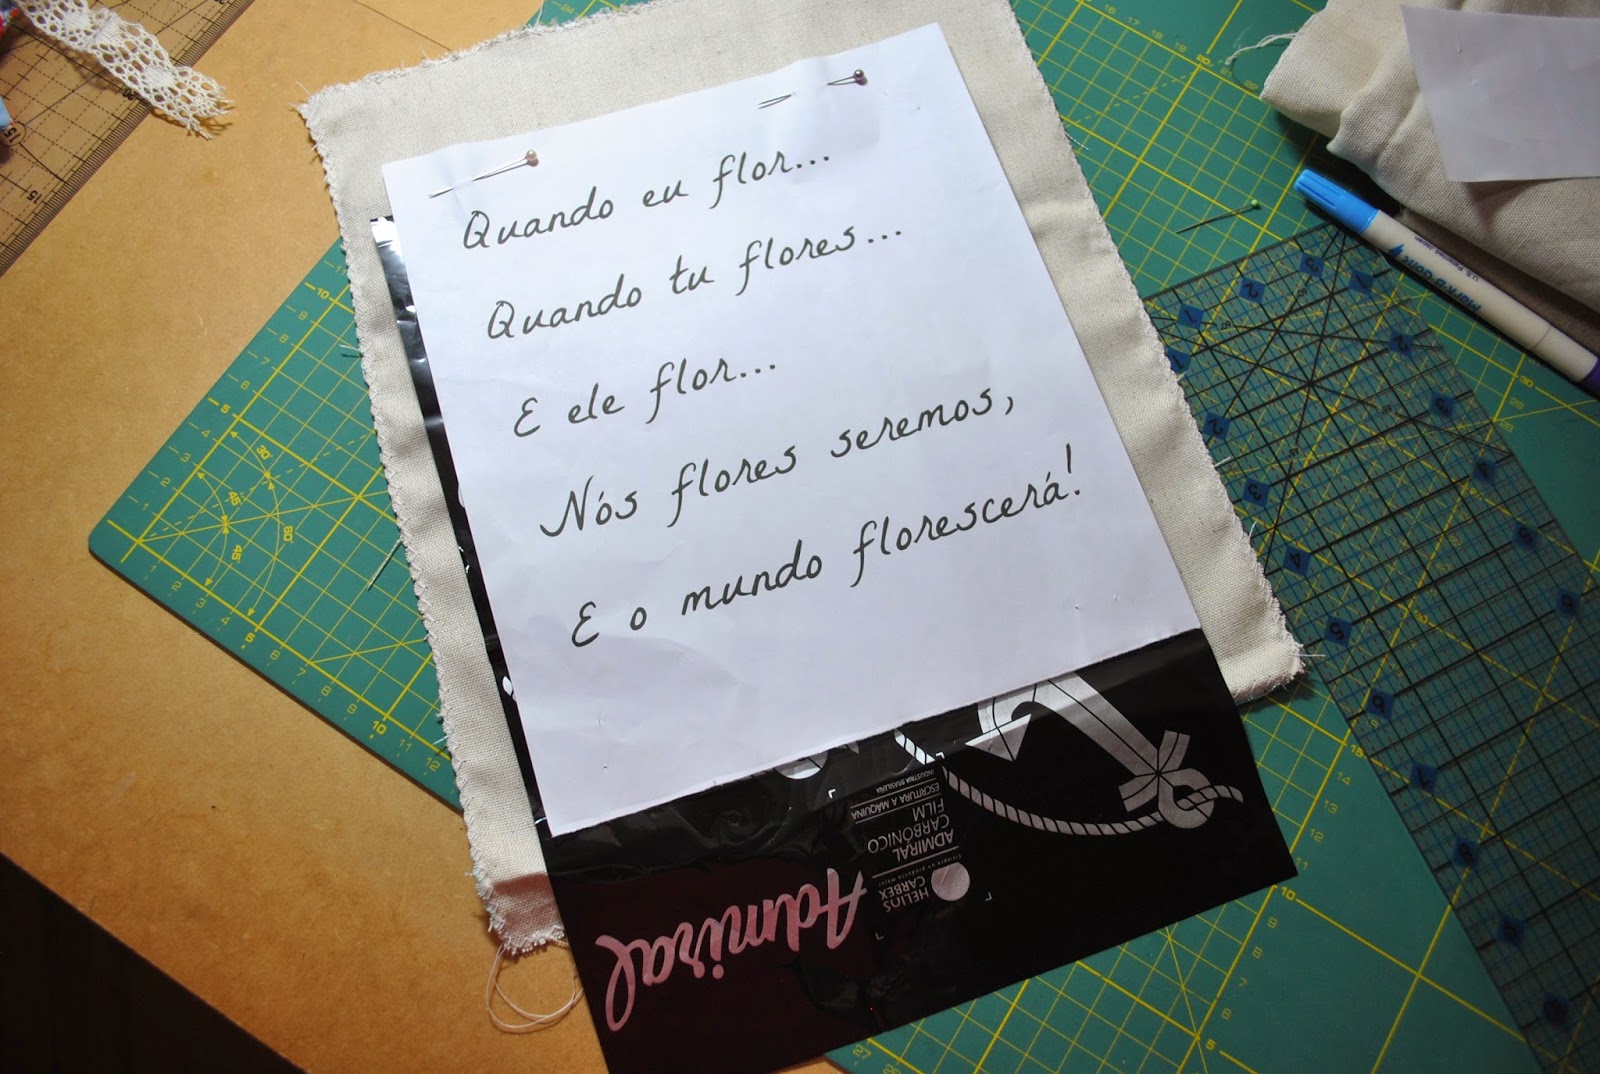 Quando eu flor...
Quando tu flores...
E ele flor...
Nós flores seremos,
E o mundo florescerá!
Admiral
HELIOS
CARBEX
Siempre un producto mejor
ADMIRAL
CARBÓNICO
FILM
ESCRITURA A MÁQUINA
INDUSTRIA BRASILEÑA
Mark-B-Gone